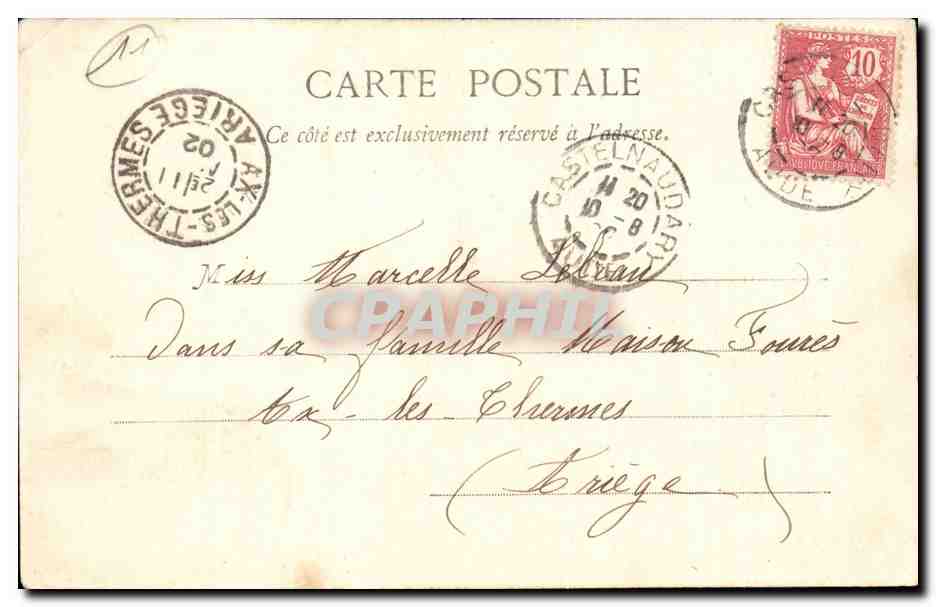 11
CARTE POSTALE
Ce côté est exclusivement réservé à l'adresse.
POSTES
10
RÉPUBLIQUE FRANÇAISE
AX-LES-THERMES ARIÈGE
02
CASTELNAUDARY
11 20
10 - 8
AUDE
AUDE
Miss Marcelle
Dans sa famille Maison Fourès
Ax-les-Thermes
(Ariège)
CPAPHIL